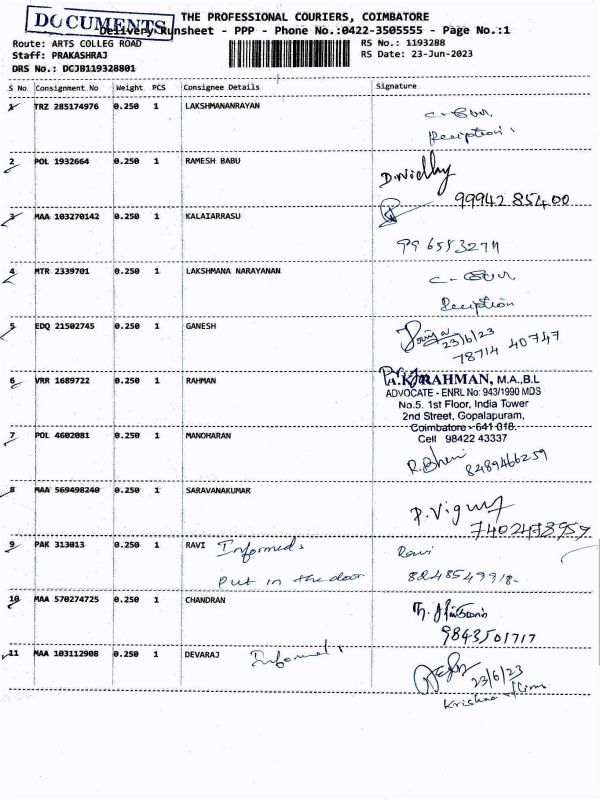 DOCUMENTS
THE PROFESSIONAL COURIERS, COIMBATORE
Delivery Runsheet - PPP - Phone No.:0422-3505555 - Page No.:1
Route: ARTS COLLEG ROAD
RS No.: 1193288
Staff: PRAKASHRAJ
RS Date: 23-Jun-2023
DRS No.: DCJB119328801
S No. Consignment No Weight PCS Consignee Details Signature
1 TRZ 285174976 0.250 1 LAKSHMANANRAYAN
Reception
2 POL 1932664 0.250 1 RAMESH BABU
99942 85400
3 MAA 103270142 0.250 1 KALAIARRASU
4 MTR 2339701 0.250 1 LAKSHMANA NARAYANAN
Reception
5 EDQ 21502745 0.250 1 GANESH
23/6/23
78714 40747
6 VRR 1689722 0.250 1 RAHMAN
A.K. RAHMAN, M.A.,B.L
ADVOCATE - ENRL No: 943/1990 MDS
No.5. 1st Floor, India Tower
2nd Street, Gopalapuram,
Coimbatore - 641 018.
Cell 98422 43337
7 POL 4602081 0.250 1 MANOHARAN
8489466259
8 MAA 569498240 0.250 1 SARAVANAKUMAR
7402478959
9 PAK 313013 0.250 1 RAVI Informed Ravi
Put in the door 8248549918
10 MAA 570274725 0.250 1 CHANDRAN
9843501717
11 MAA 103112908 0.250 1 DEVARAJ Informed
23/6/23
Krishna